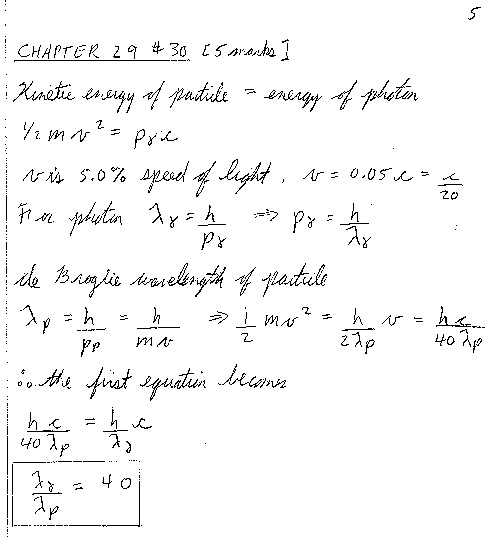 5
CHAPTER 29 # 30 [5 marks]
Kinetic energy of particle = energy of photon
1/2 m v² = pγ c
v is 5.0% speed of light, v = 0.05 c = c/20
For photon λγ = h/pγ ⇒ pγ = h/λγ
de Broglie wavelength of particle
λp = h/pp = h/mv ⇒ 1/2 mv² = h/2λp v = hc/40λp
∴ the first equation becomes
hc/40λp = h/λγ c
λγ/λp = 40